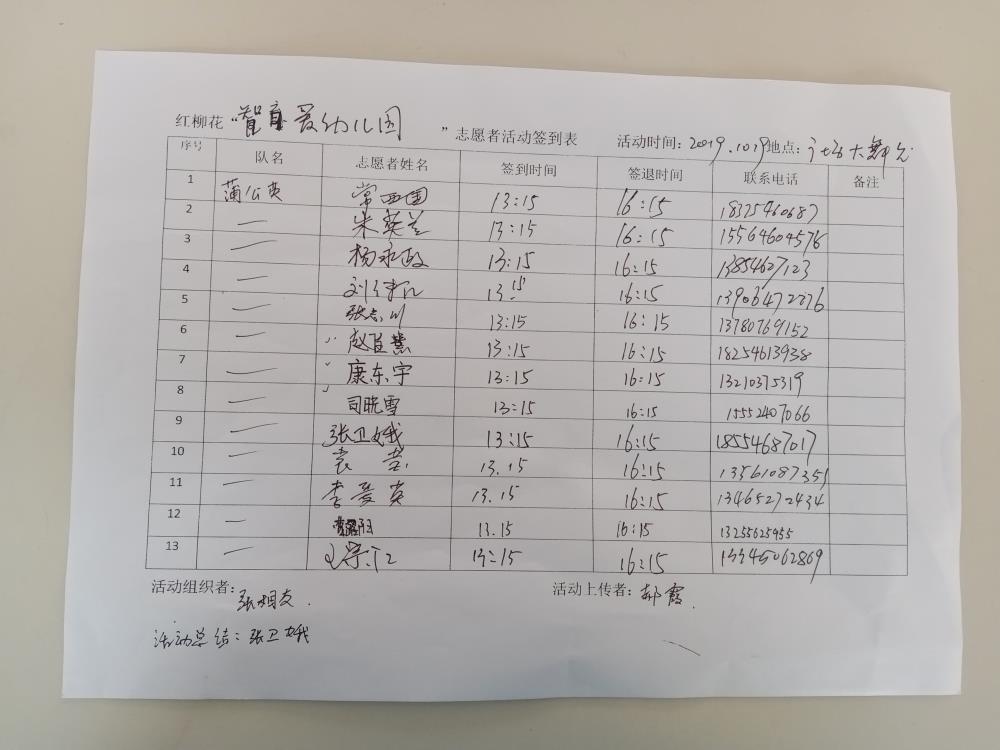 红柳花“智自爱幼儿园”志愿者活动签到表 活动时间：2019.10.19 地点：大舞台
序号 队名 志愿者姓名 签到时间 签退时间 联系电话 备注
1 蒲公英 常西国 13:15 16:15 18325460687
2 — 朱英兰 13:15 16:15 15564604576
3 — 杨永政 13:15 16:15 13854627123
4 — 13:15 16:15 13906472276
5 — 张志川 13:15 16:15 13780769152
6 — 13:15 16:15 18254613938
7 — 康东宇 13:15 16:15 13210375319
8 — 司晓雪 13:15 16:15 15552407066
9 — 张卫娥 13:15 16:15 18554687017
10 — 袁 13.15 16:15 13561087351
11 — 李爱英 13.15 16:15 13465272434
12 — 13.15 16:15 13255625955
13 — 王宗江 13:15 16:15 13345062869
活动组织者：张相友. 活动上传者：郝霞.
活动总结：张卫娥